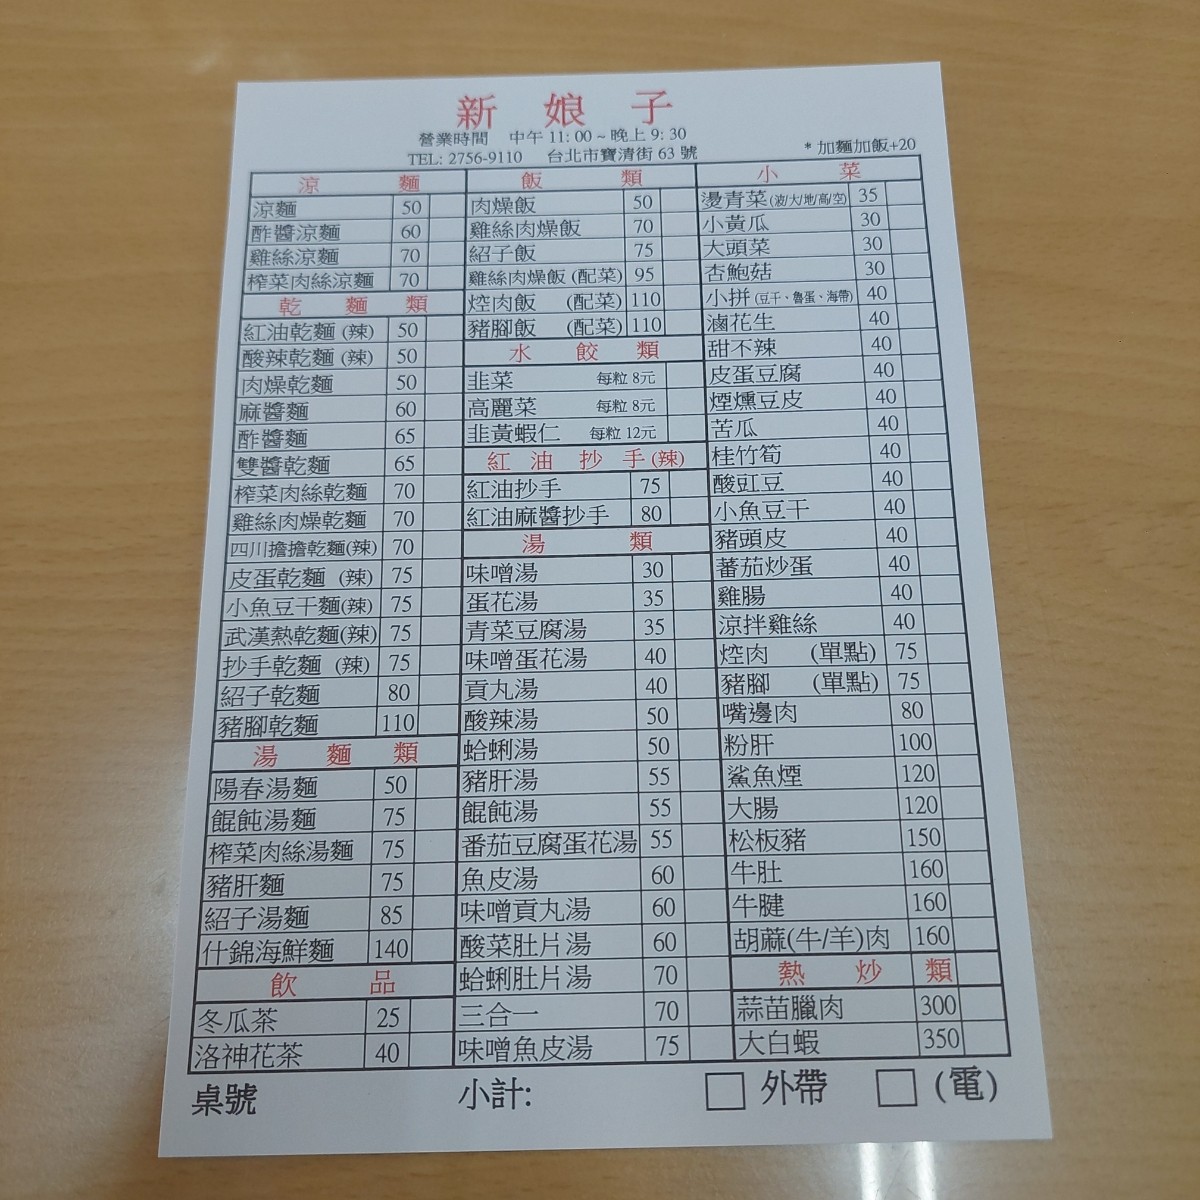 新 娘 子
營業時間 中午 11: 00 ~ 晚上 9: 30
TEL: 2756-9110 台北市寶清街 63 號
* 加麵加飯+20
涼 麵
涼麵 50
酢醬涼麵 60
雞絲涼麵 70
榨菜肉絲涼麵 70
乾 麵 類
紅油乾麵 (辣) 50
酸辣乾麵 (辣) 50
肉燥乾麵 50
麻醬麵 60
酢醬麵 65
雙醬乾麵 65
榨菜肉絲乾麵 70
雞絲肉燥乾麵 70
四川擔擔乾麵(辣) 70
皮蛋乾麵 (辣) 75
小魚豆干麵(辣) 75
武漢熱乾麵(辣) 75
抄手乾麵 (辣) 75
紹子乾麵 80
豬腳乾麵 110
湯 麵 類
陽春湯麵 50
餛飩湯麵 75
榨菜肉絲湯麵 75
豬肝麵 75
紹子湯麵 85
什錦海鮮麵 140
飲 品
冬瓜茶 25
洛神花茶 40
飯 類
肉燥飯 50
雞絲肉燥飯 70
紹子飯 75
雞絲肉燥飯 (配菜) 95
焢肉飯 (配菜) 110
豬腳飯 (配菜) 110
水 餃 類
韭菜 每粒 8元
高麗菜 每粒 8元
韭黃蝦仁 每粒 12元
紅 油 抄 手 (辣)
紅油抄手 75
紅油麻醬抄手 80
湯 類
味噌湯 30
蛋花湯 35
青菜豆腐湯 35
味噌蛋花湯 40
貢丸湯 40
酸辣湯 50
蛤蜊湯 50
豬肝湯 55
餛飩湯 55
番茄豆腐蛋花湯 55
魚皮湯 60
味噌貢丸湯 60
酸菜肚片湯 60
蛤蜊肚片湯 70
三合一 70
味噌魚皮湯 75
小 菜
燙青菜 (波/大/地/高/空) 35
小黃瓜 30
大頭菜 30
杏鮑菇 30
小拼 (豆干、魯蛋、海帶) 40
滷花生 40
甜不辣 40
皮蛋豆腐 40
煙燻豆皮 40
苦瓜 40
桂竹筍 40
酸豇豆 40
小魚豆干 40
豬頭皮 40
蕃茄炒蛋 40
雞腸 40
涼拌雞絲 40
焢肉 (單點) 75
豬腳 (單點) 75
嘴邊肉 80
粉肝 100
鯊魚煙 120
大腸 120
松板豬 150
牛肚 160
牛腱 160
胡蔴(牛/羊)肉 160
熱 炒 類
蒜苗臘肉 300
大白蝦 350
桌號 小計: □ 外帶 □ (電)